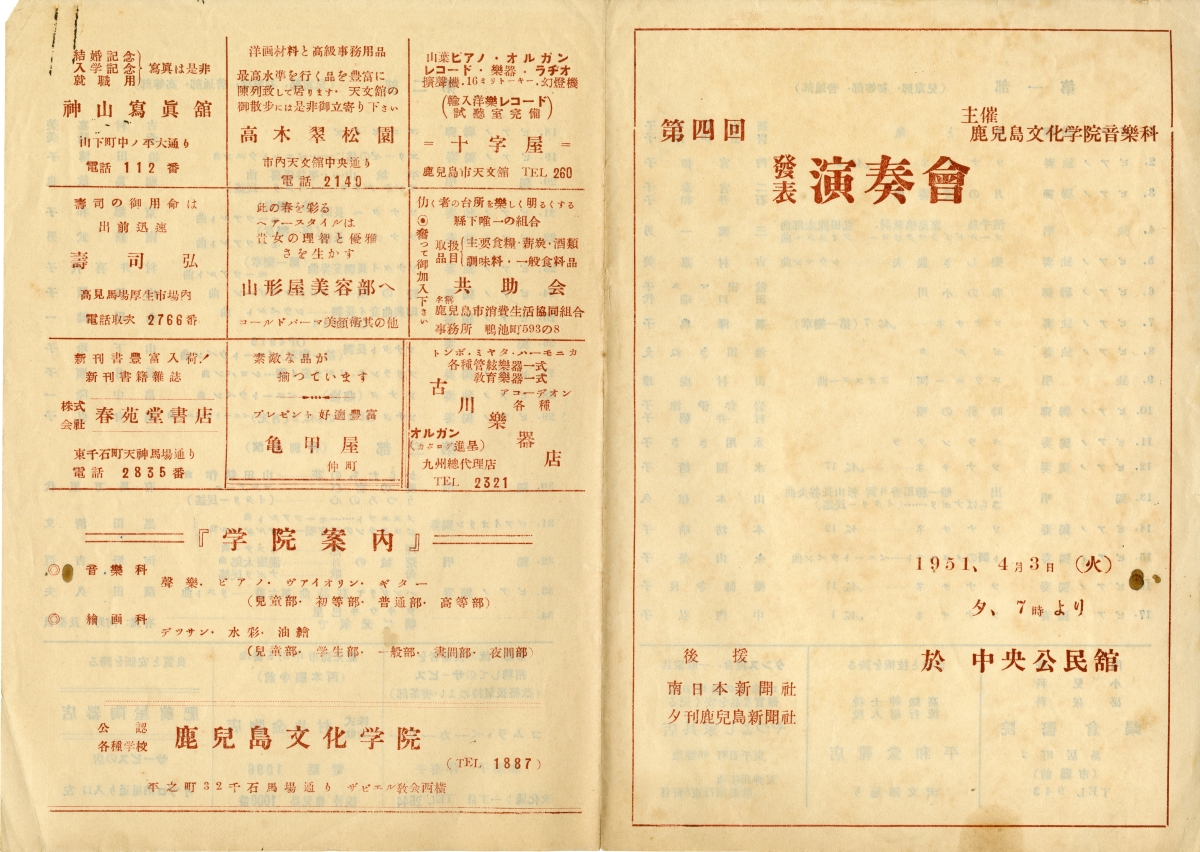 第四回
主催
鹿兒島文化学院音樂科
發表 演奏會
1951、4月3日 (火)
夕、7時より
於 中央公民館
後援
南日本新聞社
夕刊鹿兒島新聞社
結婚記念
入学記念・寫眞は是非
就職用
神山寫眞舘
山下町中ノ平大通り
電話 112 番
洋画材料と高級事務用品
最高水準を行く品を豊富に
陳列致して居ります・天文館の
御散歩には是非御立寄り下さい
高木翠松園
市内天文舘中央通り
電話 2149
山葉ピアノ・オルガン
レコード・樂器・ラヂオ
擴聲機・16ミリトーキー・幻燈機
(輸入洋樂レコード)
試聽室完備
＝ 十字屋 ＝
鹿兒島市天文舘 TEL 260
壽司の御用命は
出前迅速
壽司弘
高見馬場厚生市場内
電話取次 2766番
此の春を彩る
ヘアースタイルは
貴女の理智と優雅
さを生かす
山形屋美容部へ
コールドパーマ美顔術其の他
仂く者の台所を樂しく明るくする
縣下唯一の組合
◉奮って御加入下さい
取扱品目
(主要食糧・薪炭・酒類
調味料・一般食料品
共助会
名称
鹿兒島市消費生活協同組合
事務所 鴨池町593の8
新刊書豊富入荷!
新刊書籍雜誌
株式会社 春苑堂書店
東千石町天神馬場通り
電話 2835番
素敵な品が
揃つています
プレゼント好適豊富
亀甲屋
仲町
トンボ・ミヤタ・ハーモニカ
各種管絃樂器一式
教育樂器一式
アコーデオン
各種
古川樂器店
オルガン
(カタログ進呈)
九州總代理店
TEL 2321
『学院案内』
◎ 音樂科
聲樂. ピアノ・ヴァイオリン・ギター
(兒童部・初等部・普通部・高等部)
◎ 繪画科
デツサン・水彩・油繪
(兒童部・学生部・一般部・晝間部・夜間部)
公認
各種学校
鹿兒島文化学院
(TEL 1887)
平之町32千石馬場通り ザビエル敎会西橫